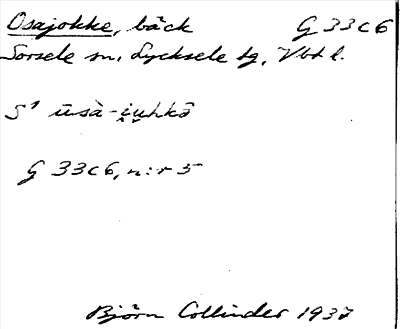 Osajokke, bäck G 33 C 6
Sorsele sn, Lycksele tg, Vbt l.
S¹ ūsà-i̯u̯hkō
G 33 C 6, n:r 5
Björn Collinder 1937